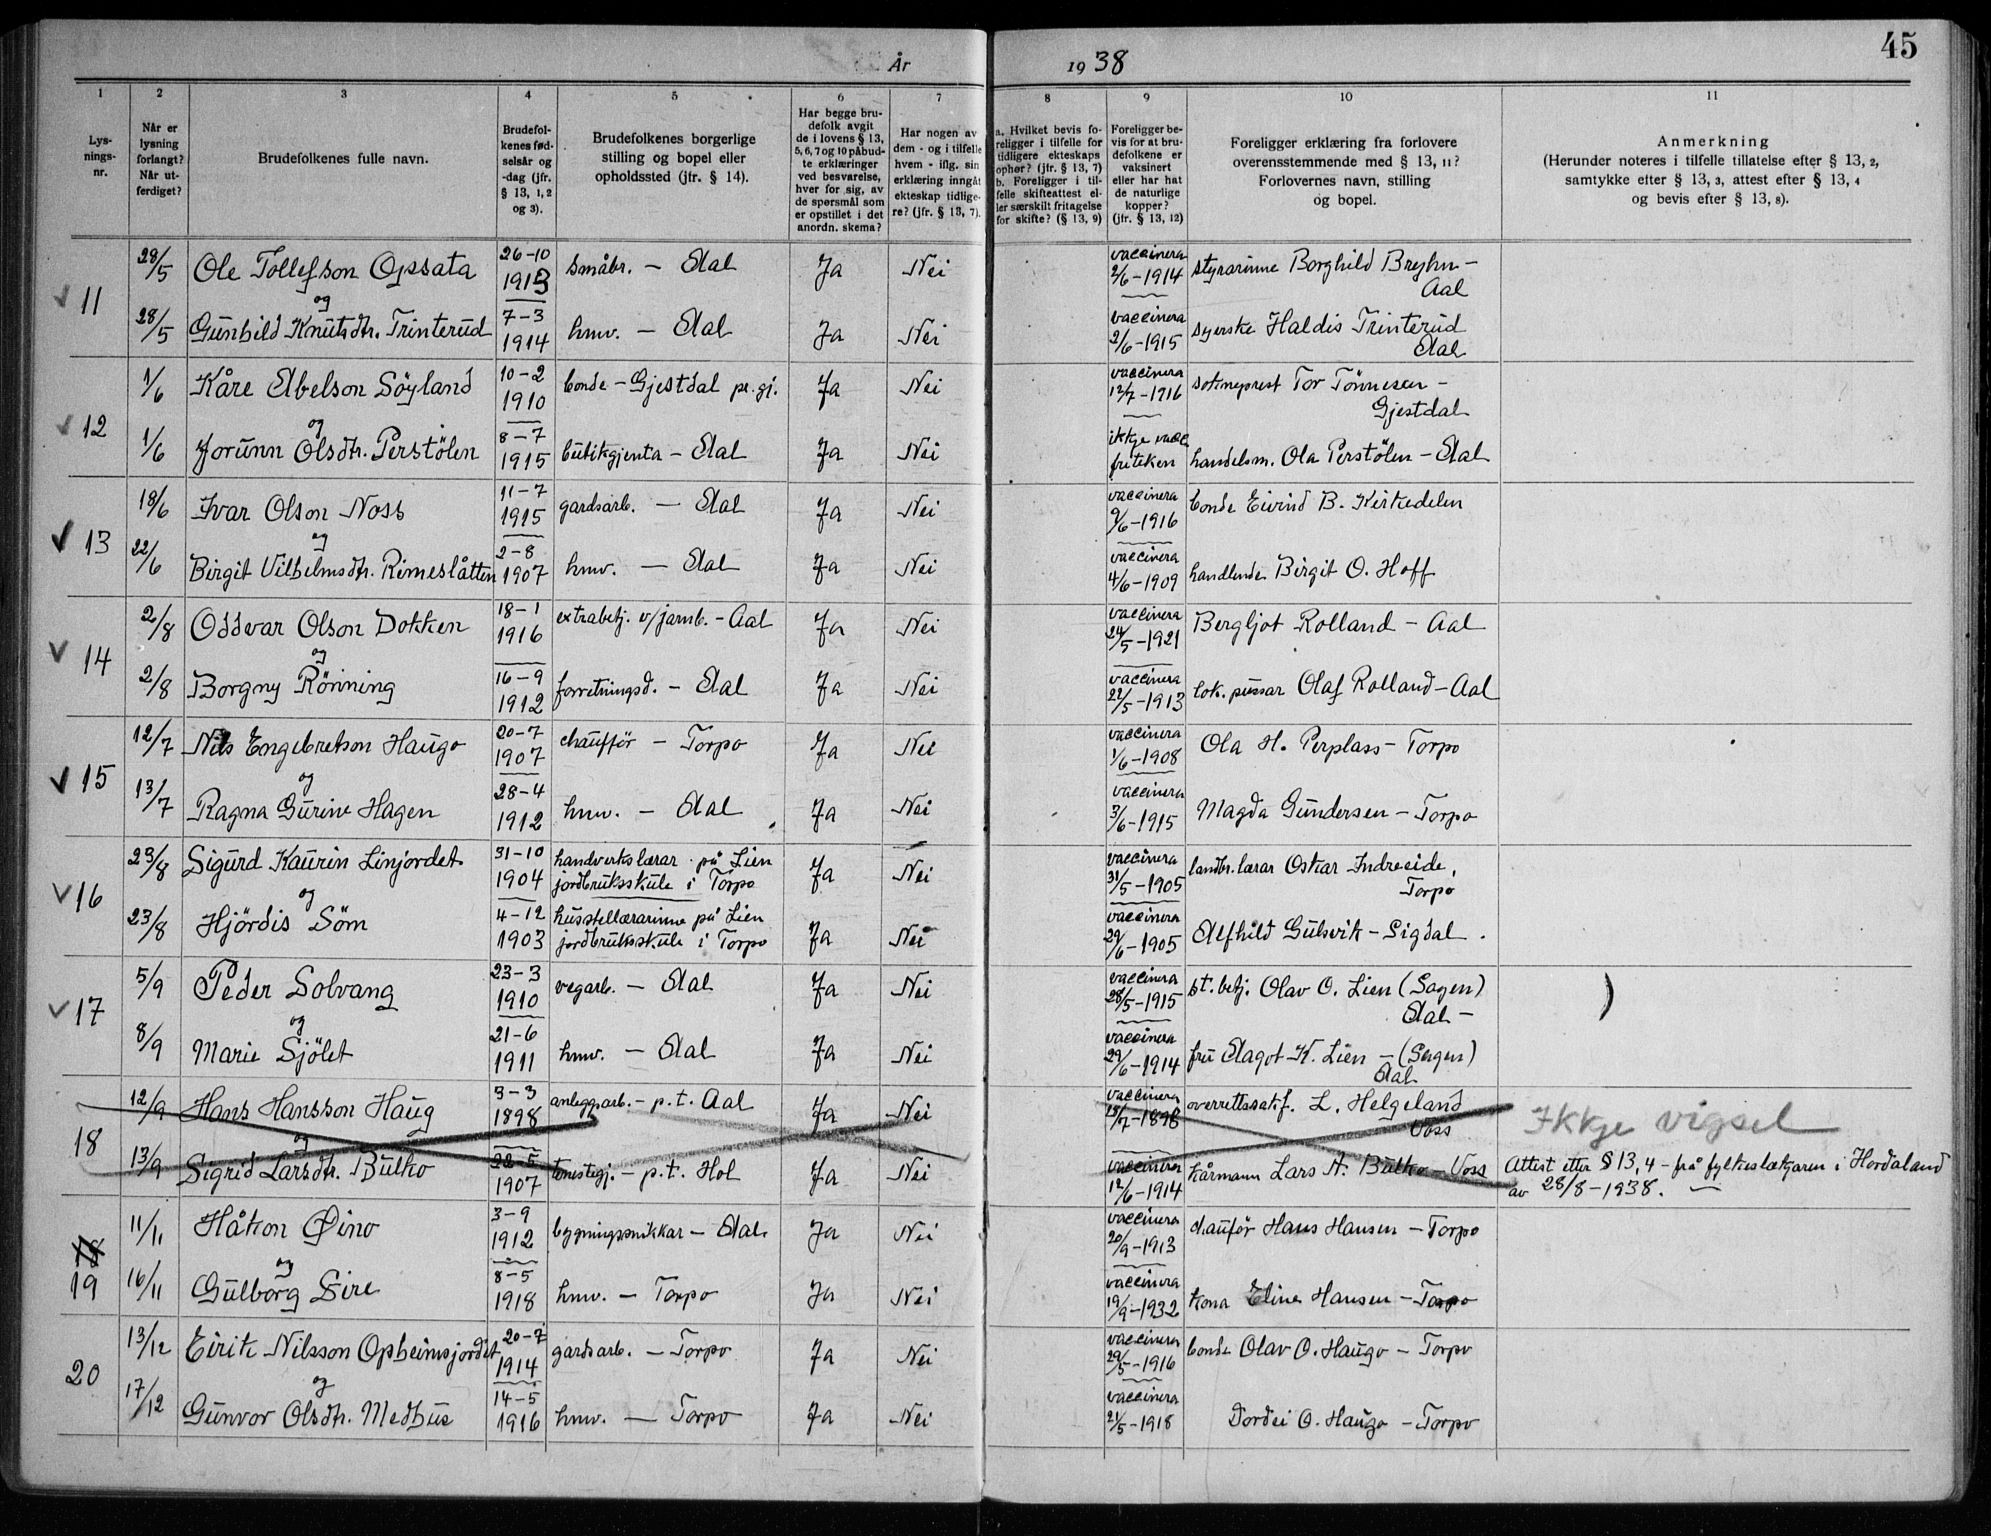 45
År 1938
1 2 3 4 5 6 7 8 9 10 11
Lysningsnr.
Når er lysning forlangt? Når utferdiget?
Brudefolkenes fulle navn.
Brudefolkenes fødselsår og -dag (jfr. § 13, 1, 2 og 3).
Brudefolkenes borgerlige stilling og bopel eller opholdssted (jfr. § 14).
Har begge brudefolk avgit de i lovens § 13, 5, 6, 7 og 10 påbudte erklæringer ved besvarelse, hver for sig, av de spørsmål som er opstillet i det anordn. skema?
Har nogen av dem - og i tilfelle hvem - iflg. sin erklæring inngåt ekteskap tidligere? (jfr. § 13, 7).
a. Hvilket bevis foreligger i tilfelle for tidligere ekteskaps ophør? (jfr. § 13, 7) b. Foreligger i tilfelle skifteattest eller særskilt fritagelse for skifte? (§ 13, 9)
Foreligger bevis for at brudefolkene er vaksinert eller har hat de naturlige kopper? (jfr. § 13, 12)
Foreligger erklæring fra forlovere overensstemmende med § 13, 11? Forlovernes navn, stilling og bopel.
Anmerkning (Herunder noteres i tilfelle tillatelse efter § 13, 2, samtykke efter § 13, 3, attest efter § 13, 4 og bevis efter § 13, 8).
11
28/5 Ole Tollefson Opsata 26-10 1913 småbr. - Aal Ja Nei vaccinera 2/6-1914 styrarinne Borghild Bryhn - Aal
og
28/5 Gunhild Knutsdtr. Trinterud 7-3 1914 hmv. - Aal Ja Nei vaccinera 2/6-1915 syerske Haldis Trinterud Aal
12
1/6 Kåre Abelson Söyland 10-2 1910 bonde - Gjestdal pr.gj. Ja Nei vaccinera 12/7-1916 sokneprest Tor Tönnesen - Gjestdal
og
1/6 Jorunn Olsdtr. Perstölen 8-7 1915 butikgjenta - Aal Ja Nei ikkje vacc. handelsm. Ola Perstölen - Aal
13
18/6 Ivar Olson Noss 11-7 1915 gardsarb. - Aal Ja Nei vaccinera 9/6-1916 bonde Eivind B. Kirkedelen
og
22/6 Birgit Vilhelmsdtr. Rimeslåtten 2-8 1907 hmv. - Aal Ja Nei vaccinera 4/6-1909 handlende Birgit O. Hoff
14
2/8 Oddvar Olson Dokken 18-1 1916 extrabetj. v/jarnb. - Aal Ja Nei vaccinera 24/5-1921 Bergljot Rolland - Aal
og
2/8 Borgny Rönning 16-9 1912 forretningsd. - Aal Ja Nei vaccinera 22/5-1913 lok. pussar Olaf Rolland - Aal
15
12/7 Nils Engebretson Haugo 20-7 1907 chaufför - Torpo Ja Nei vaccinera 1/6-1908 Ola H. Perplass - Torpo
og
13/7 Ragna Gurine Hagen 28-4 1912 hmv. - Aal Ja Nei vaccinera 3/6-1915 Magda Gundersen - Torpo
16
23/8 Sigurd Kaurin Linjordet 31-10 1904 handverkslærar på Lien jordbruksskule i Torpo Ja Nei vaccinera 31/5-1905 landbr.lærar Oskar Indreeide, Torpo
og
23/8 Hjördis Söm 4-12 1903 husstellærarinne på Lien jordbruksskule i Torpo Ja Nei vaccinera 29/6-1905 Alfhild Gulsvik - Sigdal.
17
5/9 Peder Solvang 23-3 1910 vegarb. - Aal Ja Nei vaccinera 28/5-1915 st.betj. Olav O. Lien (Sagen) Aal -
og
8/9 Marie Sjölet 21-6 1911 hmv. - Aal Ja Nei vaccinera 29/6-1914 fru Aagot K. Lien - (Sagen) Aal
18
12/9 Hans Hansson Haug 3-3 1898 anleggsarb. - p.t. Aal Ja Nei vaccinera 18/7-1898 overrettssakf. L. Helgeland Voss Ikkje vigsel
og
13/9 Sigrid Larsdtr. Bulko 22-5 1907 tenestegj. - p.t. Hol Ja Nei vaccinera 12/6-1914 kårmann Lars A. Bulko - Voss Attest etter § 13, 4 - frå fylkeslækjaren i Hordaland av 28/8-1938. -
19
11/11 Håkon Øino 3-9 1912 bygningssnikkar - Aal. Ja Nei vaccinera 20/9-1913 chauför Hans Hansen - Torpo
og
16/11 Gulborg Lire 8-5 1918 hmv. - Torpo Ja Nei vaccinera 19/9-1932 kona Eline Hansen - Torpo
20
13/12 Eirik Nilsson Opheimsjordet 20-7 1914 gardsarb. - Torpo Ja Nei vaccinera 29/5-1916 bonde Olav O. Haugo - Torpo
og
17/12 Gunvor Olsdtr. Medhus 14-5 1916 hmv. - Torpo Ja Nei vaccinera 21/5-1918 Dordei O. Haugo - Torpo